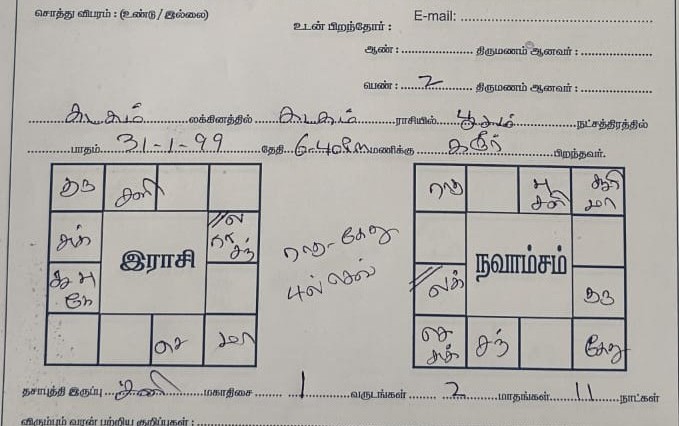 சொத்து விபரம் : (உண்டு / இல்லை)
உடன் பிறந்தோர் :
E-mail:
ஆண் : திருமணம் ஆனவர் :
பெண் : 2 திருமணம் ஆனவர் :
கடகம் லக்கினத்தில் கடகம் ராசியில் பூசம் நட்சத்திரத்தில்
பாதம் 31-1-99 தேதி 6-40 மணிக்கு கரூர் பிறந்தவர்.
குரு சனி
சுக்
ல ரா சந்
இராசி
சூ பு கே
செ மா
ராகு கேது
4ல் செவ்
ராகு பு சனி சூரி மா
நவாம்சம்
லக் குரு
செ சுக் சந் கேது
தசாபுத்தி இருப்பு சனி மகாதிசை 1 வருடங்கள் 2 மாதங்கள் 11 நாட்கள்
விரும்பும் வரன் பற்றிய குறிப்புகள் :